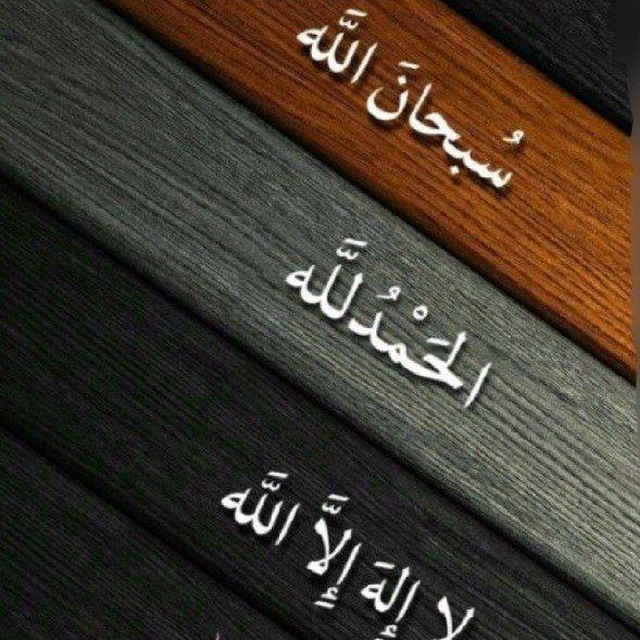 سُبحانَ اللَّه
الحَمْدُللَّه
لا إِلهَ إِلاَّ اللَّه